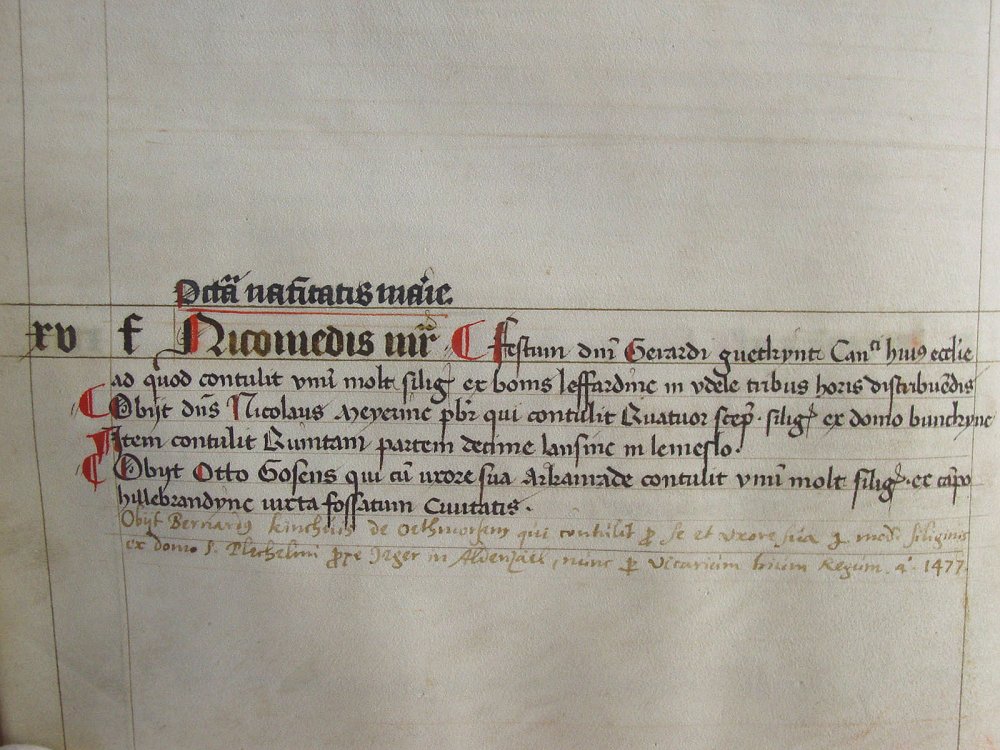 Octã natiũtatis marie.
xv f Nicomedis mr̃ Festum dni Gerardi guetkynt Canᵃ huiꝰ ecclie
ad quod contulit vnũ molt silig ex bonis leffardinc in vdele tribus horis distribuẽdis
Obijt dñs Nicolaus Meyerinc pbr qui contulit Quatuor scep̃. silig ex domo buncknyc
Item contulit Quintam partem decime lansinc in lemeslo.
Obijt Otto Gosens qui cũ vxore sua contulit vnũ molt silig. ex cãpo
hillebrandync iuxta fossatum Civitatis.
Obijt Bernardꝰ de qui cõtulit p se et vxore sua medi siliginis
ex domo S. Plechelmi ꝓpe Jeger in Aldenzael, nunc p vicarium trium Regum. aᵒ 1477.